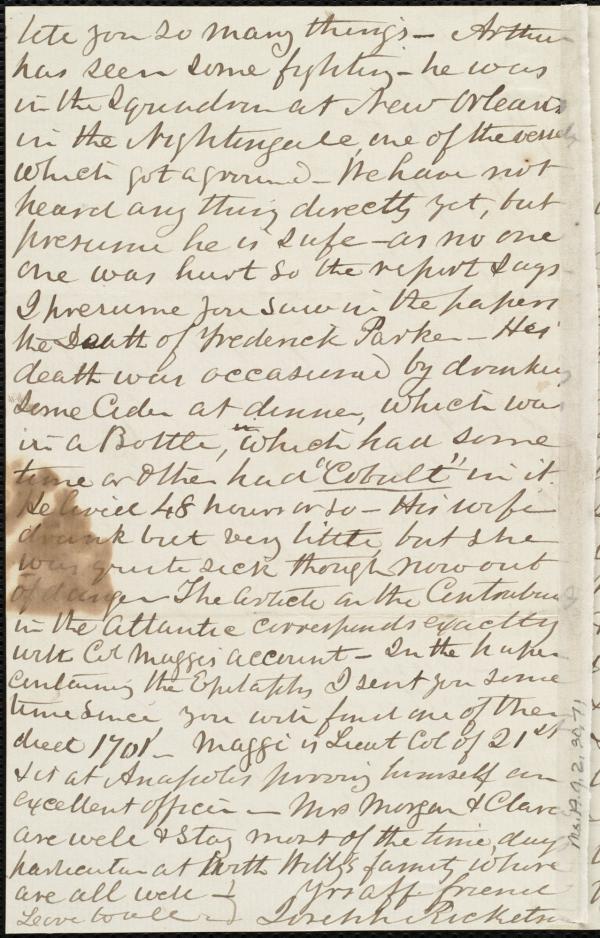 lete you so many things - Arthur
has seen some fighting - he was
in the Squadron at New Orleans
in the Nightingale, one of the vessels
which got aground - We have not
heard any thing directly yet, but
presume he is safe - as no one
one was hurt so the report says
I presume you saw in the papers
the Death of Frederick Parker - His
death was occasioned by drinking
some Cider at dinner, which was
in a Bottle, "in which had some
time or other had "Cobalt" in it.
He lived 48 hours or so - His wife
drank but very little but she
was quite sick though now out
of danger - The article on the Contraband
in the Atlantic corresponds exactly
with Col Maggi's account - In the paper
containing the Epitaphs I sent you some
time since you will find one of them
died 1701 - Maggi is Lieut Col of 21st
& is at Anapolis proving himself an
excellent officer - Mrs Morgan & Clara
are well & stay most of the time, day
particular at with Willy's family, where
are all well -
Yrs aff friend
Leave to all
Joseph Ricketson
Ms. A.9.2.30.71